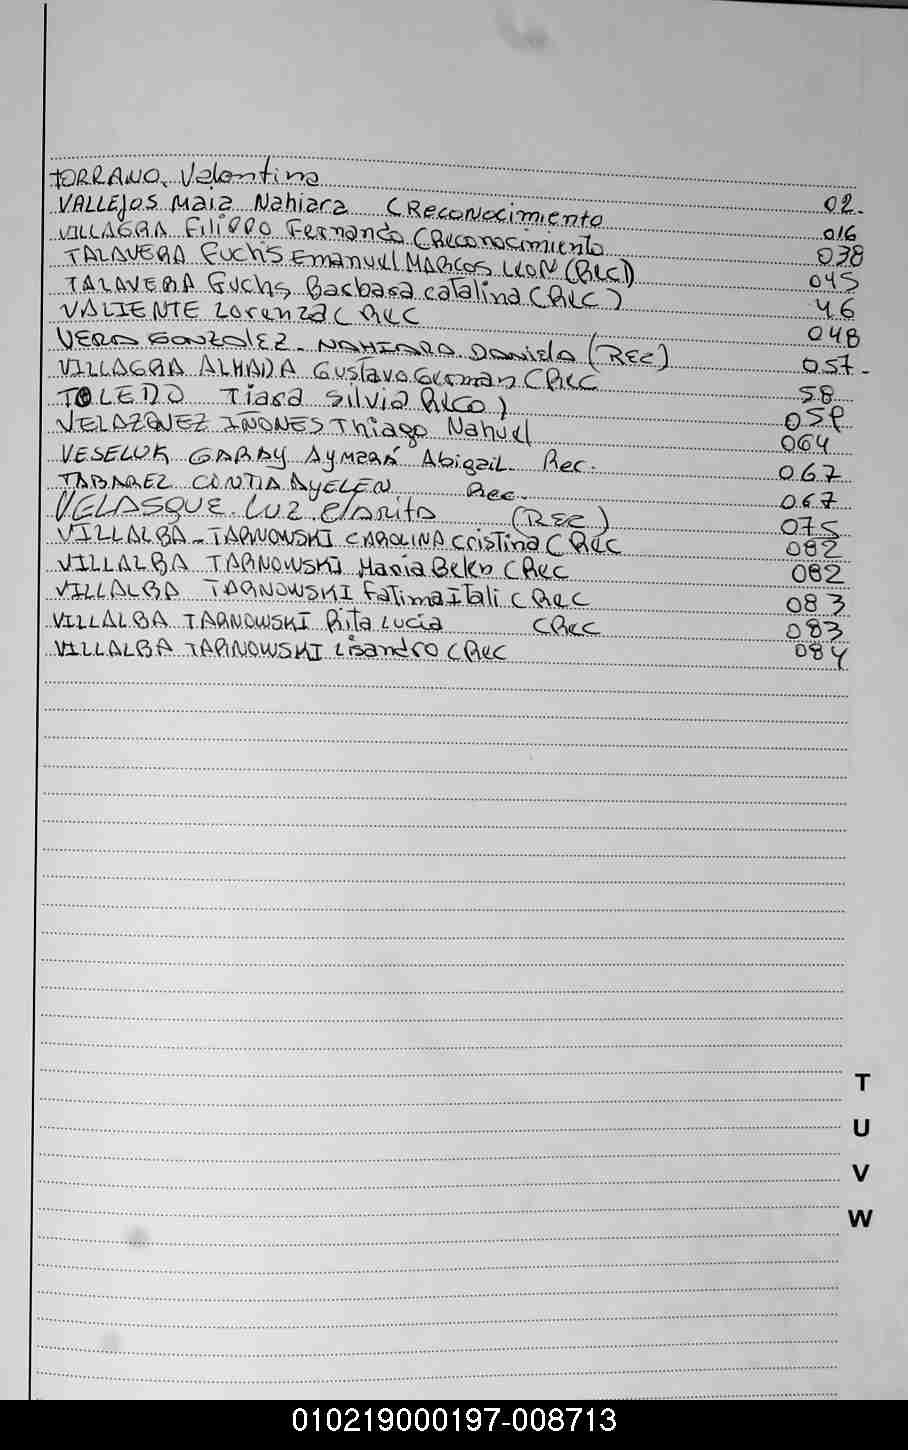 TORRANO, Valentina 02.
VALLEJOS Maia Nahiara (Reconocimiento 016
VILLAGRA Filippo Fernando (Reconocimiento 038
TALAVERA Fuchs Emanuel MARCOS LEON (Rec) 045
TALAVERA Fuchs Barbara catalina (Rec) 46
VALIENTE Lorenza (Rec 048
VERA GONZALEZ - NAHIARA Daniela (REC) 057.
VILLAGRA ALMADA Gustavo German (Rec 58
TOLEDO Tiara Silvia Rco) 059
VELAZQUEZ IÑONES Thiago Nahuel 064
VESELUK GARAY AYMARÁ Abigail Rec. 067
TABAREZ CINTIA AYELEN Rec. 067
VELASQUE. LUZ Clarita (REC) 075
VILLALBA - TARNOWSKI CAROLINA Cristina (Rec 082
VILLALBA TARNOWSKI Maria Belen (Rec 082
VILLALBA TARNOWSKI Fatima Itali (Rec 083
VILLALBA TARNOWSKI Rita Lucia (Rec 083
VILLALBA TARNOWSKI Lisandro (Rec 084
T
U
V
W
010219000197-008713